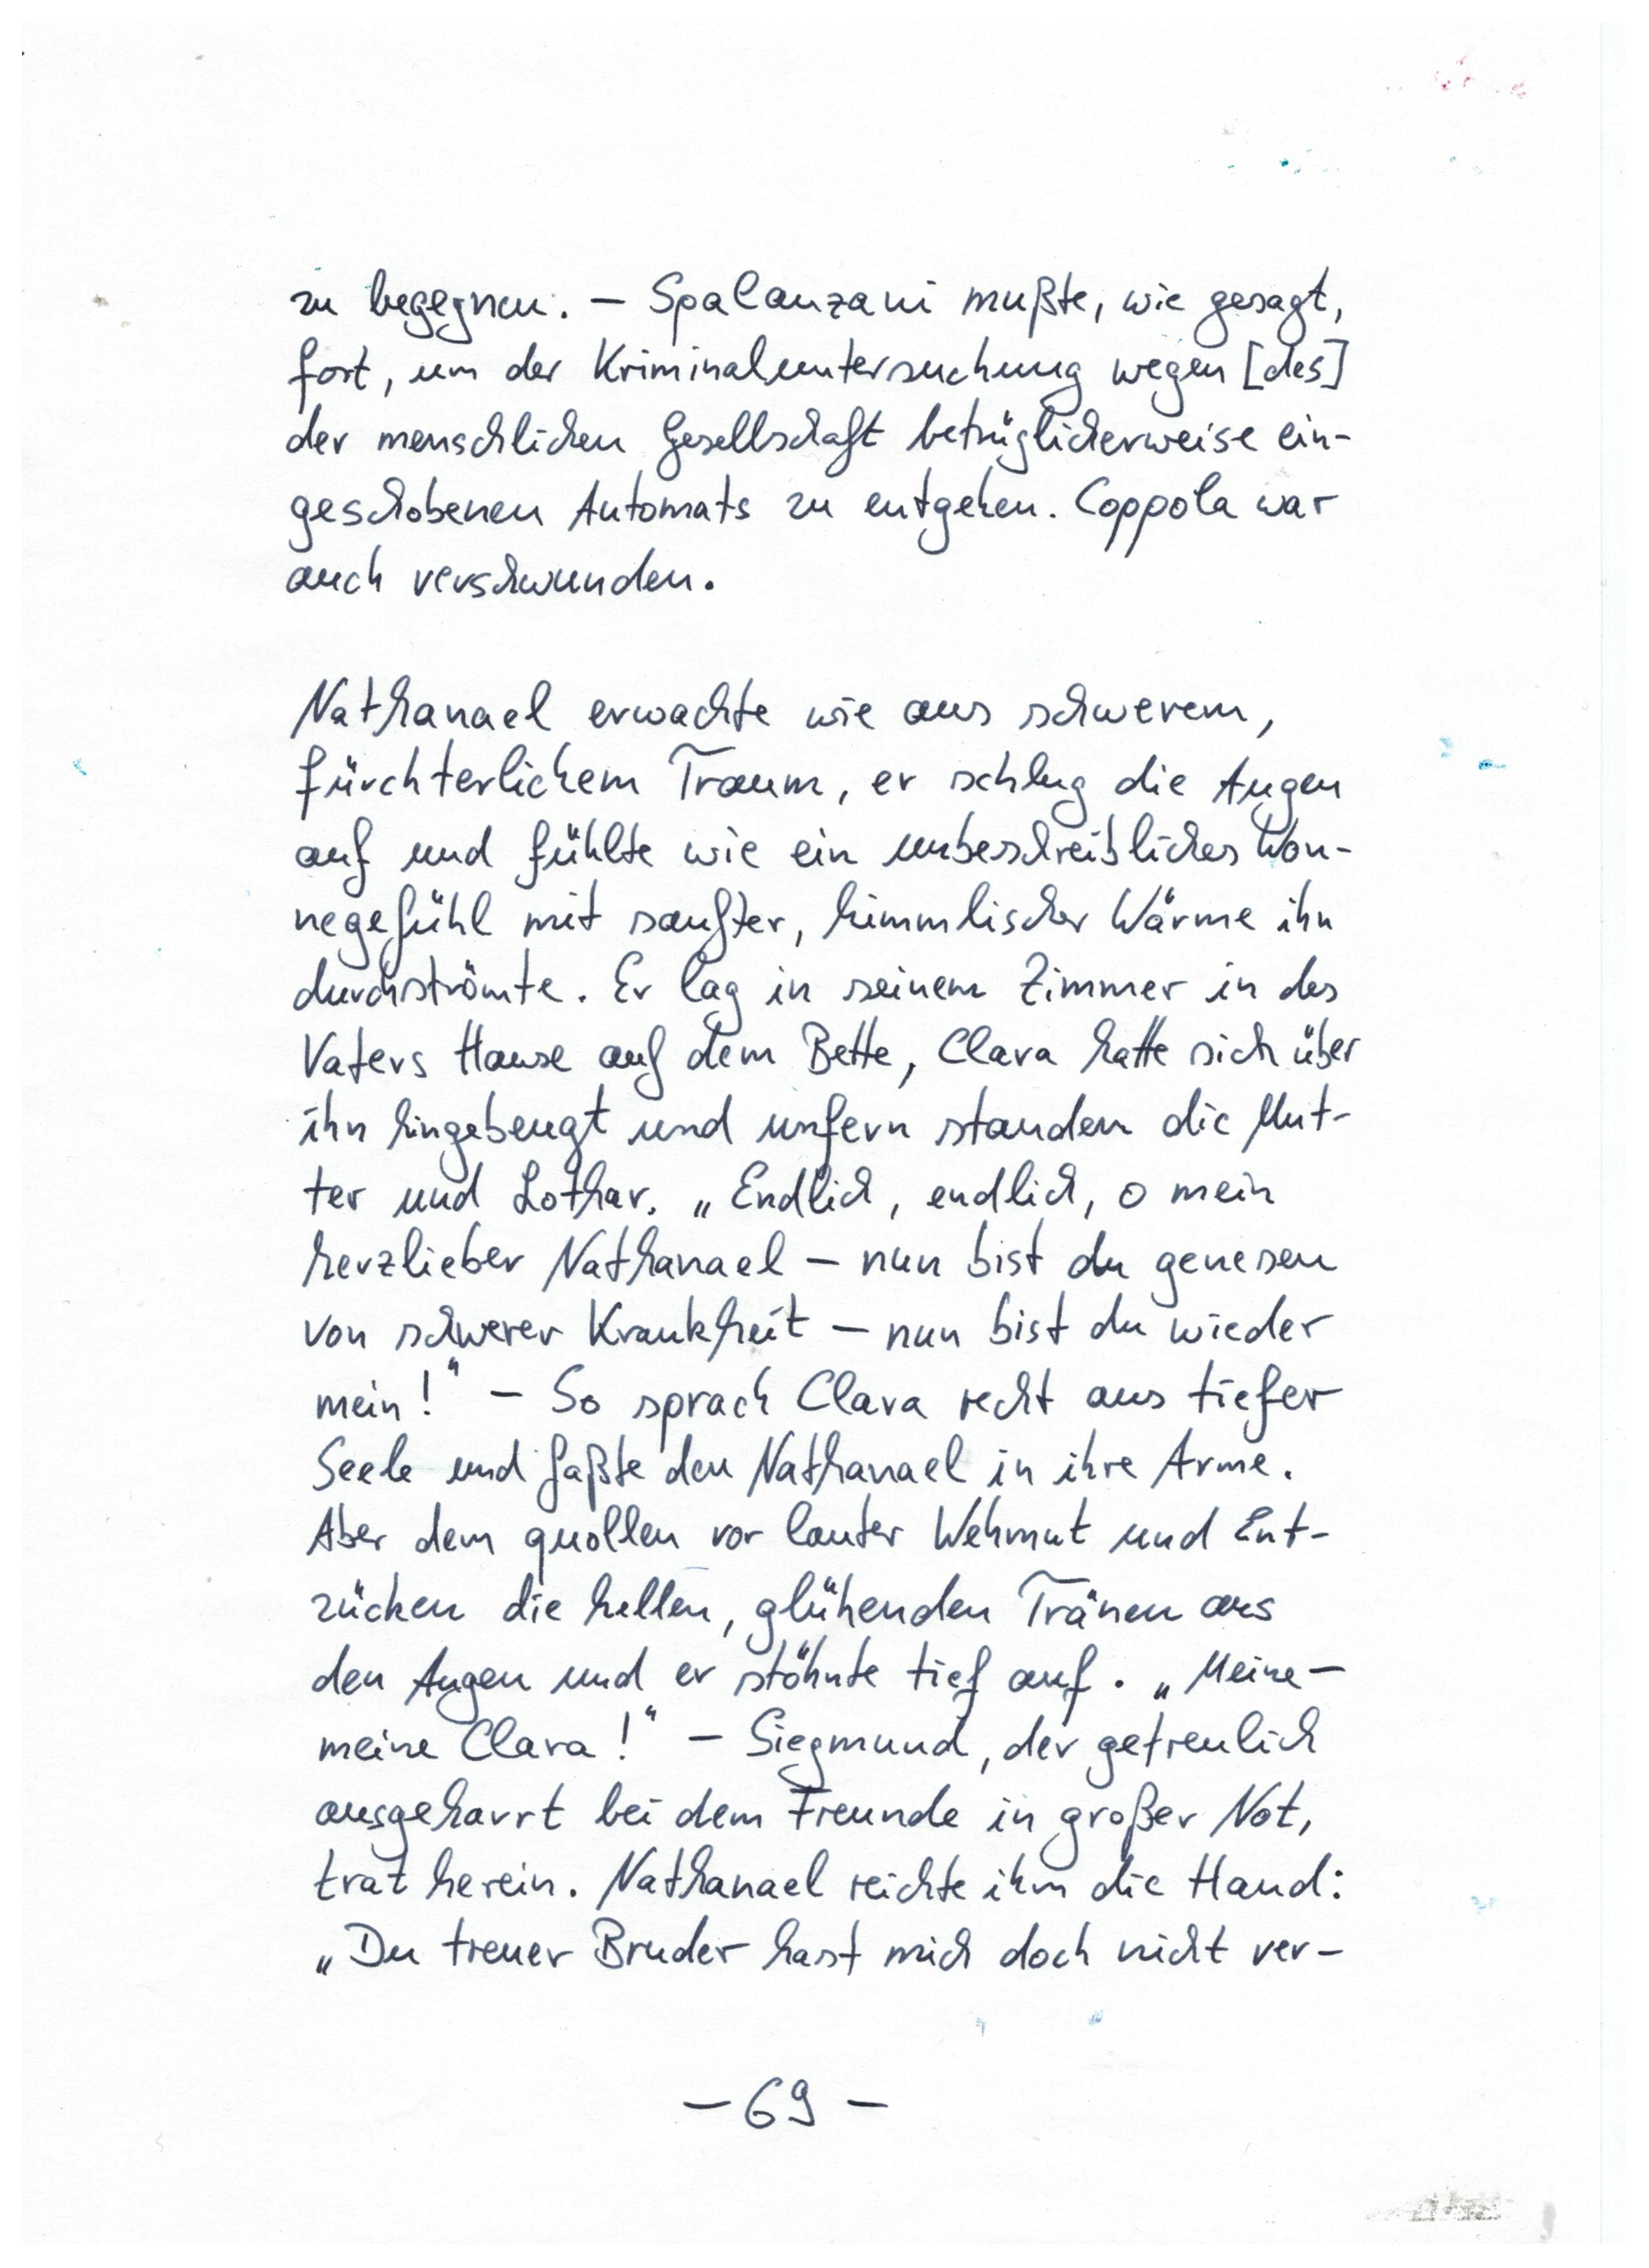 zu begegnen. – Spalanzani mußte, wie gesagt,
fort, um der Kriminaluntersuchung wegen [des]
der menschlichen Gesellschaft betrüglicherweise ein-
geschobenen Automats zu entgehen. Coppola war
auch verschwunden.
Nathanael erwachte wie aus schwerem,
fürchterlichem Traum, er schlug die Augen
auf und fühlte wie ein unbeschreibliches Won-
negefühl mit sanfter, himmlischer Wärme ihn
durchströmte. Er lag in seinem Zimmer in des
Vaters Hause auf dem Bette, Clara hatte sich über
ihn hingebeugt und unfern standen die Mut-
ter und Lothar. „Endlich, endlich, o mein
herzlieber Nathanael – nun bist du genesen
von schwerer Krankheit – nun bist du wieder
mein!“ – So sprach Clara recht aus tiefer
Seele und faßte den Nathanael in ihre Arme.
Aber dem quollen vor lauter Wehmut und Ent-
zücken die hellen, glühenden Tränen aus
den Augen und er stöhnte tief auf. „Meine –
meine Clara!“ – Siegmund, der getreulich
ausgeharrt bei dem Freunde in großer Not,
trat herein. Nathanael reichte ihm die Hand:
„Du treuer Bruder hast mich doch nicht ver-
– 69 –